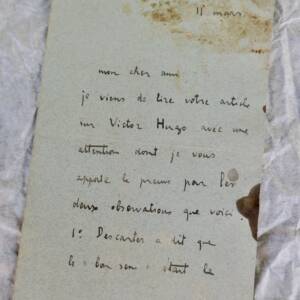 15 mars
mon cher ami
je viens de lire votre article
sur Victor Hugo avec une
attention dont je vous
apporte la preuve par les
deux observations que voici :
1º Descartes a dit que
le bon sens étant la